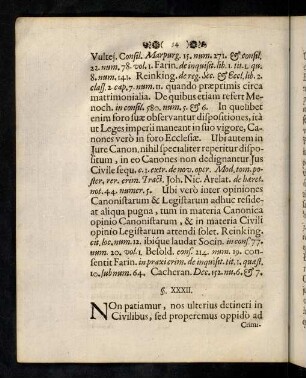 14
Vultej. Consil. Marpurg. 15. num. 271. & consil.
22. num. 78. vol. 1. Farin. de inquisit. lib. 1. tit. 1. qu.
8. num. 141. Reinking. de reg. Sec. & Eccl. lib. 2.
class. 2 cap. 7. num. 11. quando præprimis circa
matrimonialia. De quibus etiam refert Me-
noch. in consil. 580. num. 5. & 6. In quolibet
enim foro suæ observantur dispositiones, ita
ut Leges imperii maneant in suo vigore, Ca-
nones verò in foro Ecclesiæ. Ubi autem in
Jure Canon. nihil specialiter reperitur dispo-
situm, in eo Canones non dedignantur Jus
Civile sequi. c. 1. extr. de nov. oper. Mod. tom. po-
ster. rer. crim. Tract. Joh. Nic. Arelat. de hæret.
not. 44. numer. 5. Ubi verò inter opiniones
Canonistarum & Legistarum adhuc reside-
at aliqua pugna, tum in materia Canonica
opinio Canonistarum, & in materia Civili
opinio Legistarum attendi solet. Reinking.
cit, loc. num. 12. ibique laudat Socin. in cons. 77.
num. 20. vol. 1. Besold. cons. 214. num. 19. con-
sentit Farin. in praxi crim. de inquisit. tit. 1. quæst.
10. sub num. 64. Cacheran. Dec. 152. nu. 6. & 7.
§. XXXII.
NOn patiamur, nos ulterius detineri in
Civilibus, sed properemus oppidò ad
Crimi-